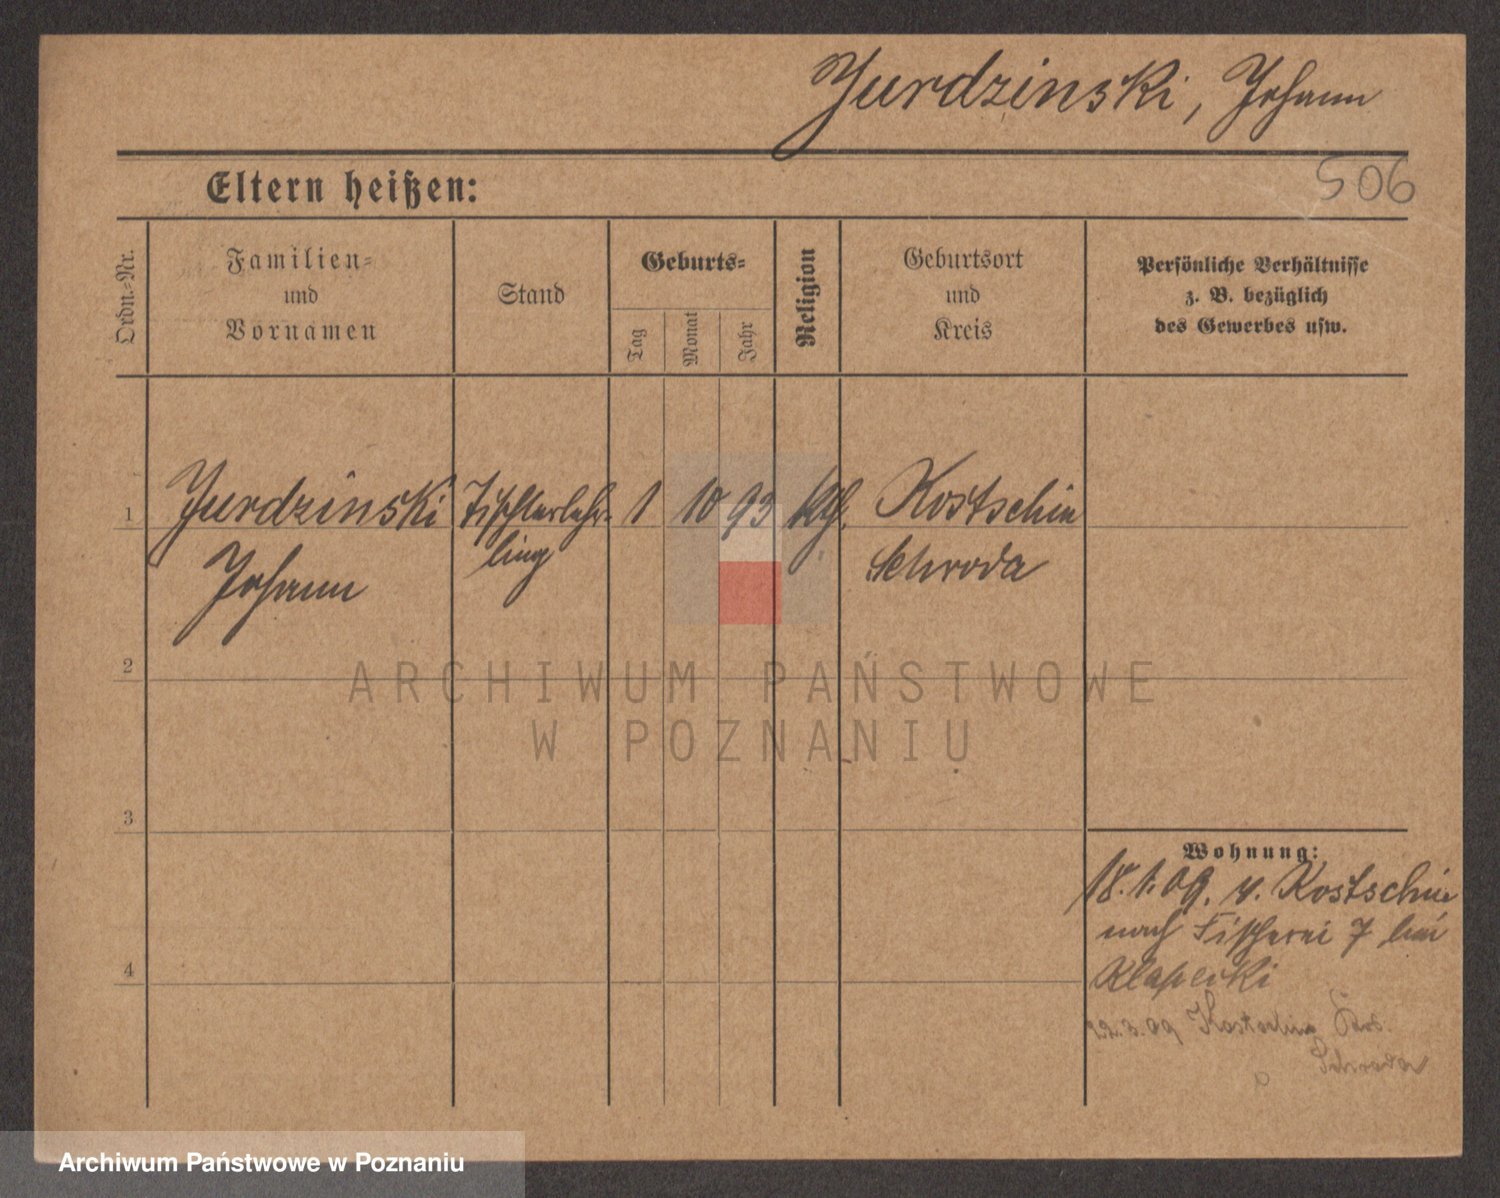 Jurdzinski, Johann
506
Eltern heißen:
Ordn.-Nr.
Familien-
und
Vornamen
Stand
Geburts-
Tag
Monat
Jahr
Religion
Geburtsort
und
Kreis
Persönliche Verhältnisse
z. B. bezüglich
des Gewerbes usw.
1
Jurdzinski
Johann
Tischlerlehr-
ling
1
10
93
kth.
Kostschin
Schroda
2
3
4
Wohnung:
18.1.09. v. Kostschin
nach Fischerei 7 bei
Klapecki
22.3.09 Kostschin Krs.
Schroda
ARCHIWUM PAŃSTWOWE
W POZNANIU
Archiwum Państwowe w Poznaniu